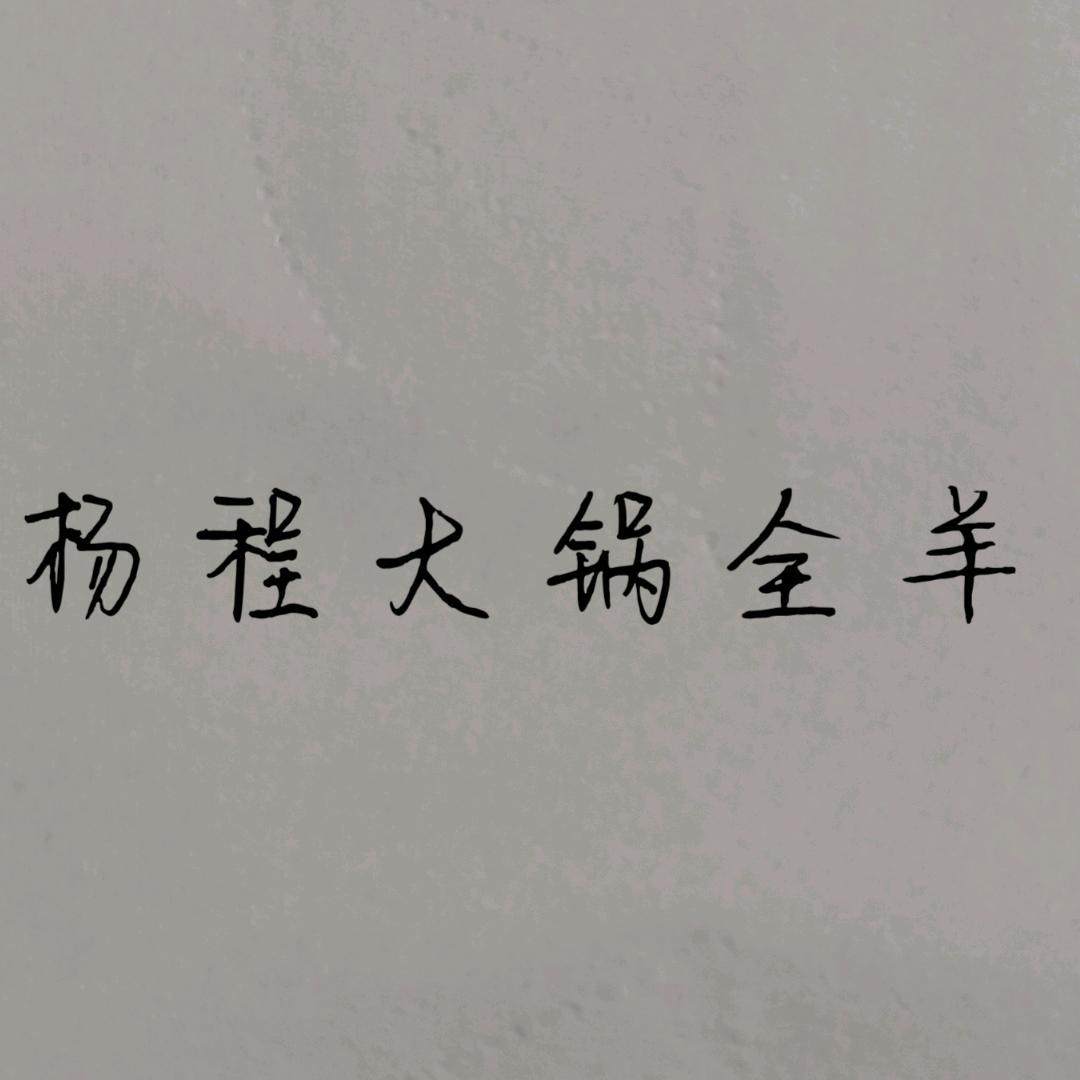 杨程大锅全羊